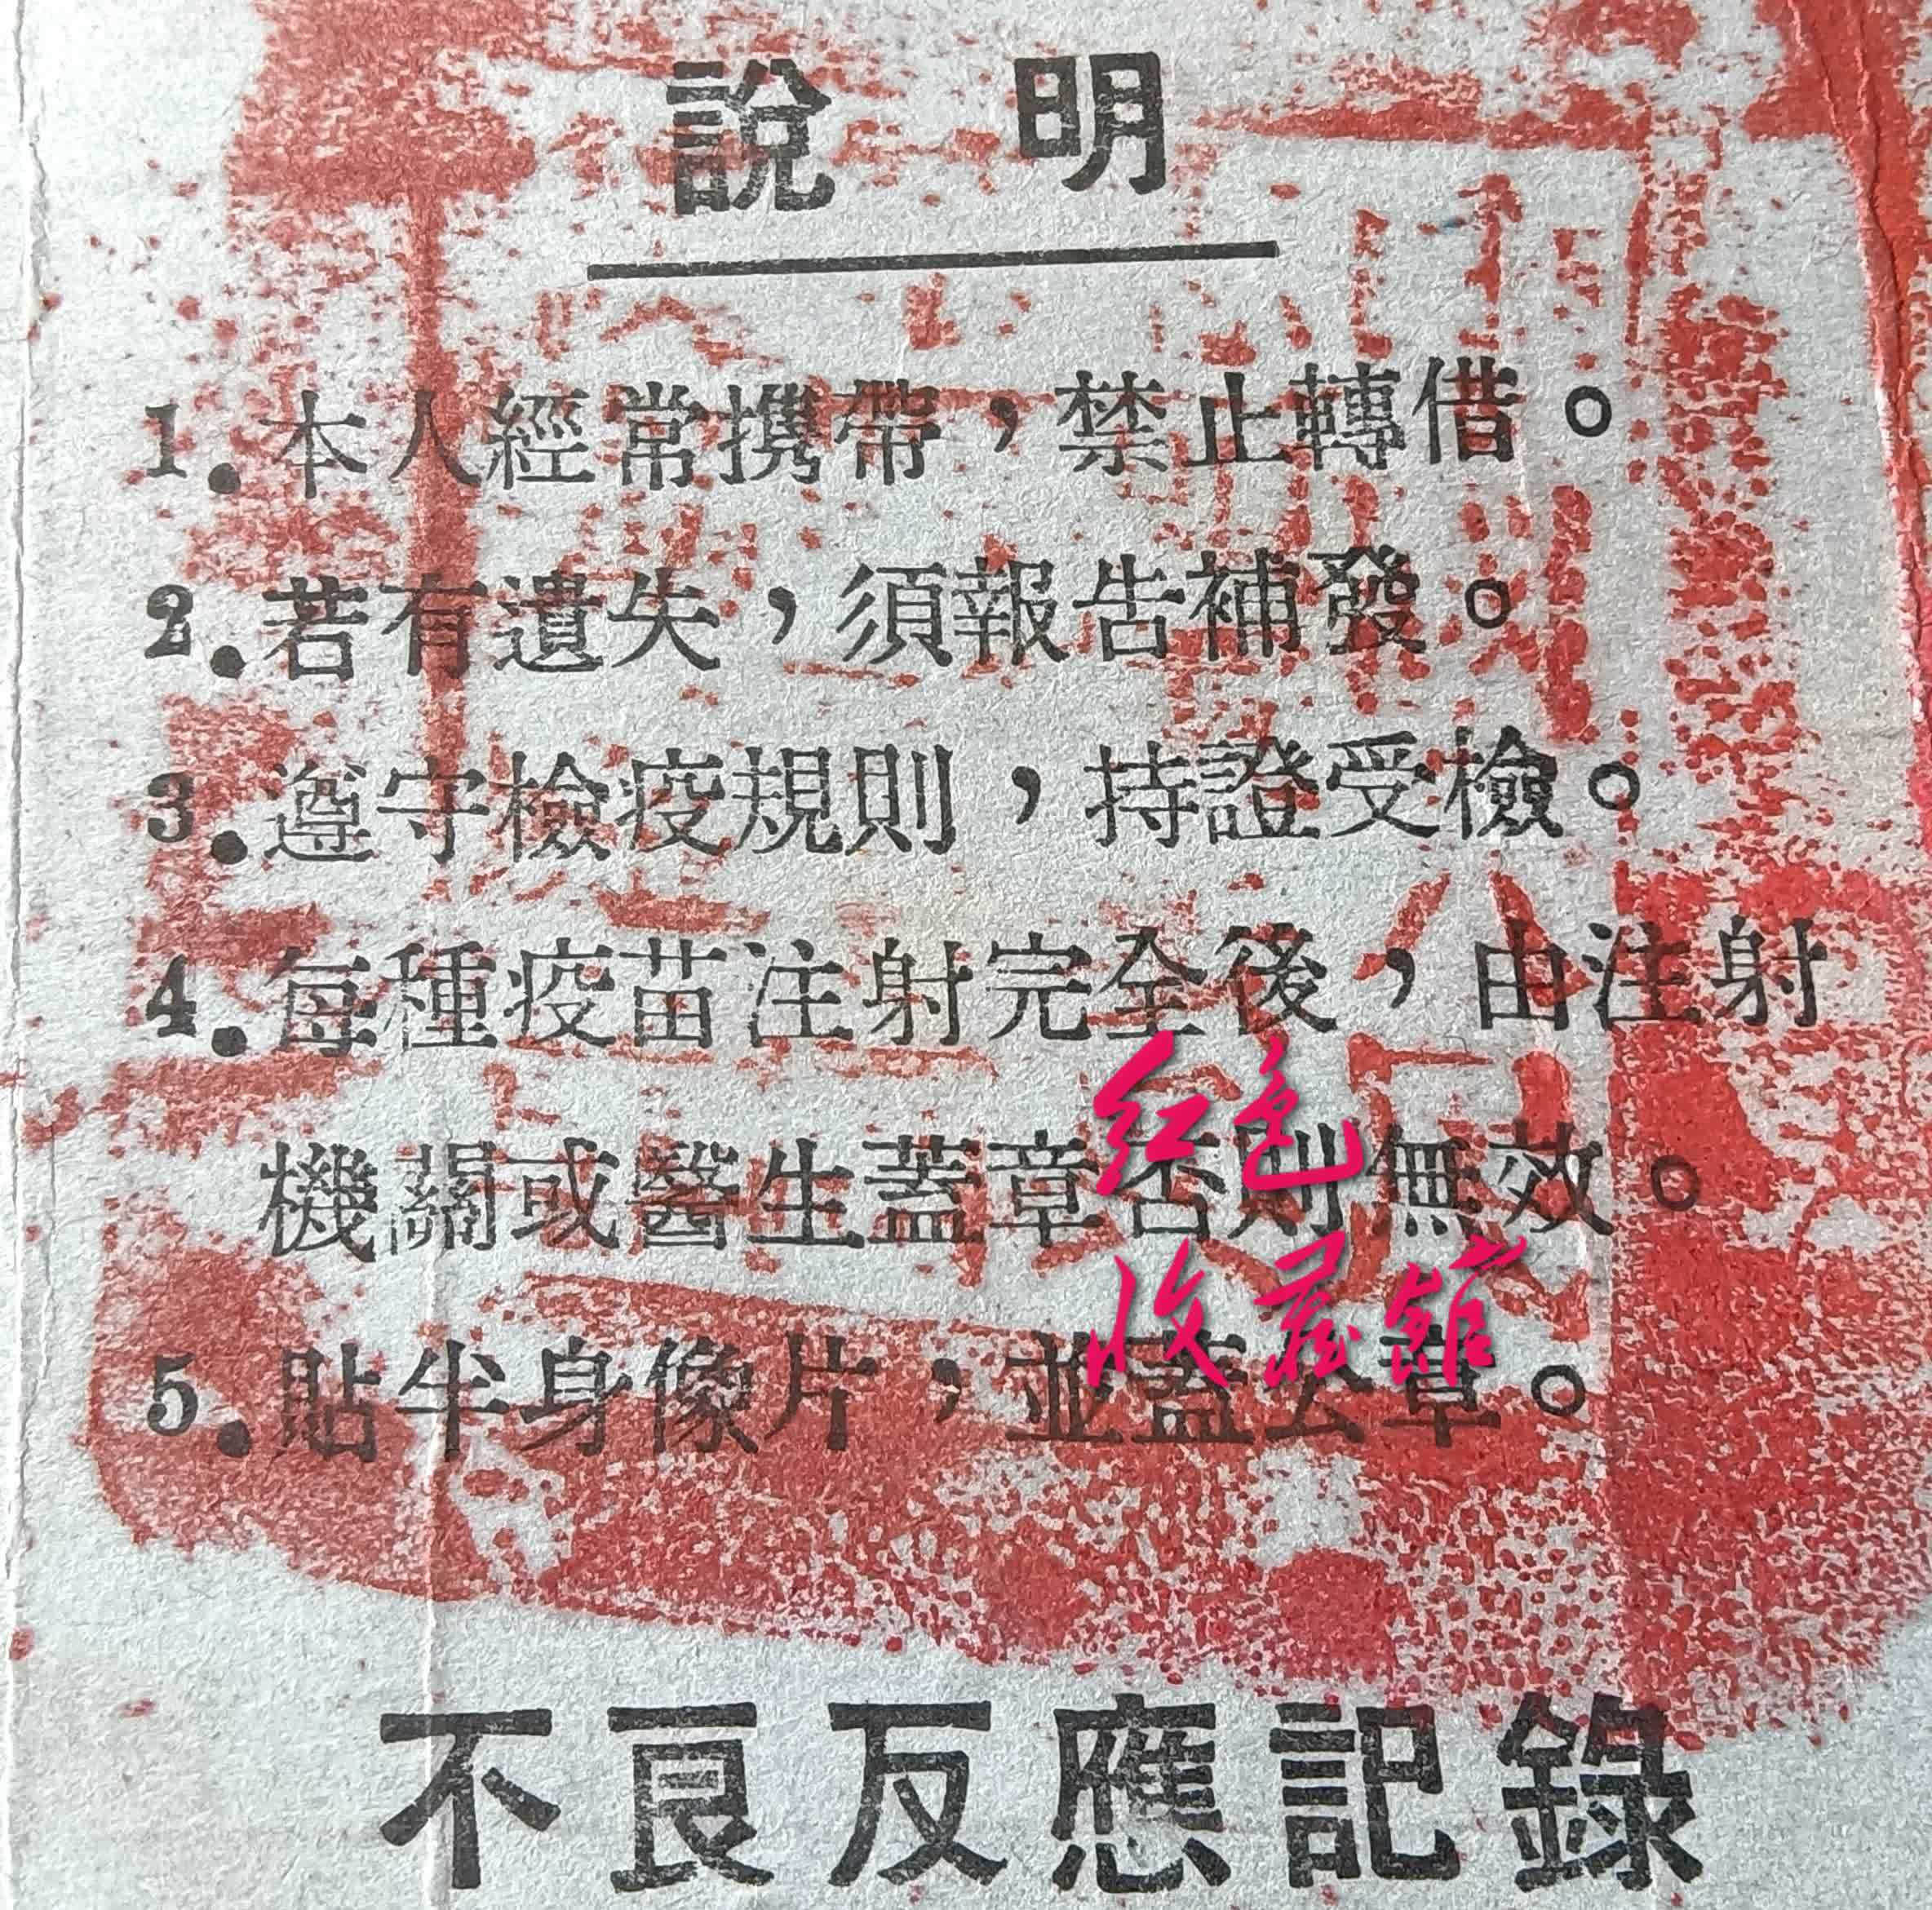 說明
1.本人經常携帶，禁止轉借。
2.若有遺失，須報告補發。
3.遵守檢疫規則，持證受檢。
4.每種疫苗注射完全後，由注射
機關或醫生蓋章否則無效。
5.貼半身像片，並蓋公章。
红色
收藏馆
不良反應記錄